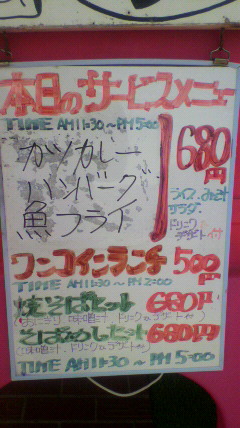 本日のサービスメニュー
TIME AM11:30～PM5:00
カツカレー
ハンバーグ
魚フライ
680円
ライス・みそ汁
サラダ・
ドリンク
デザート付
ワンコインランチ 500円
TIME AM11:30～PM2:00
焼そばセット 680円
味噌汁・ドリンク・デザート付
そばめしセット 680円
(味噌汁・ドリンク・デザート付)
TIME AM11:30～PM5:00